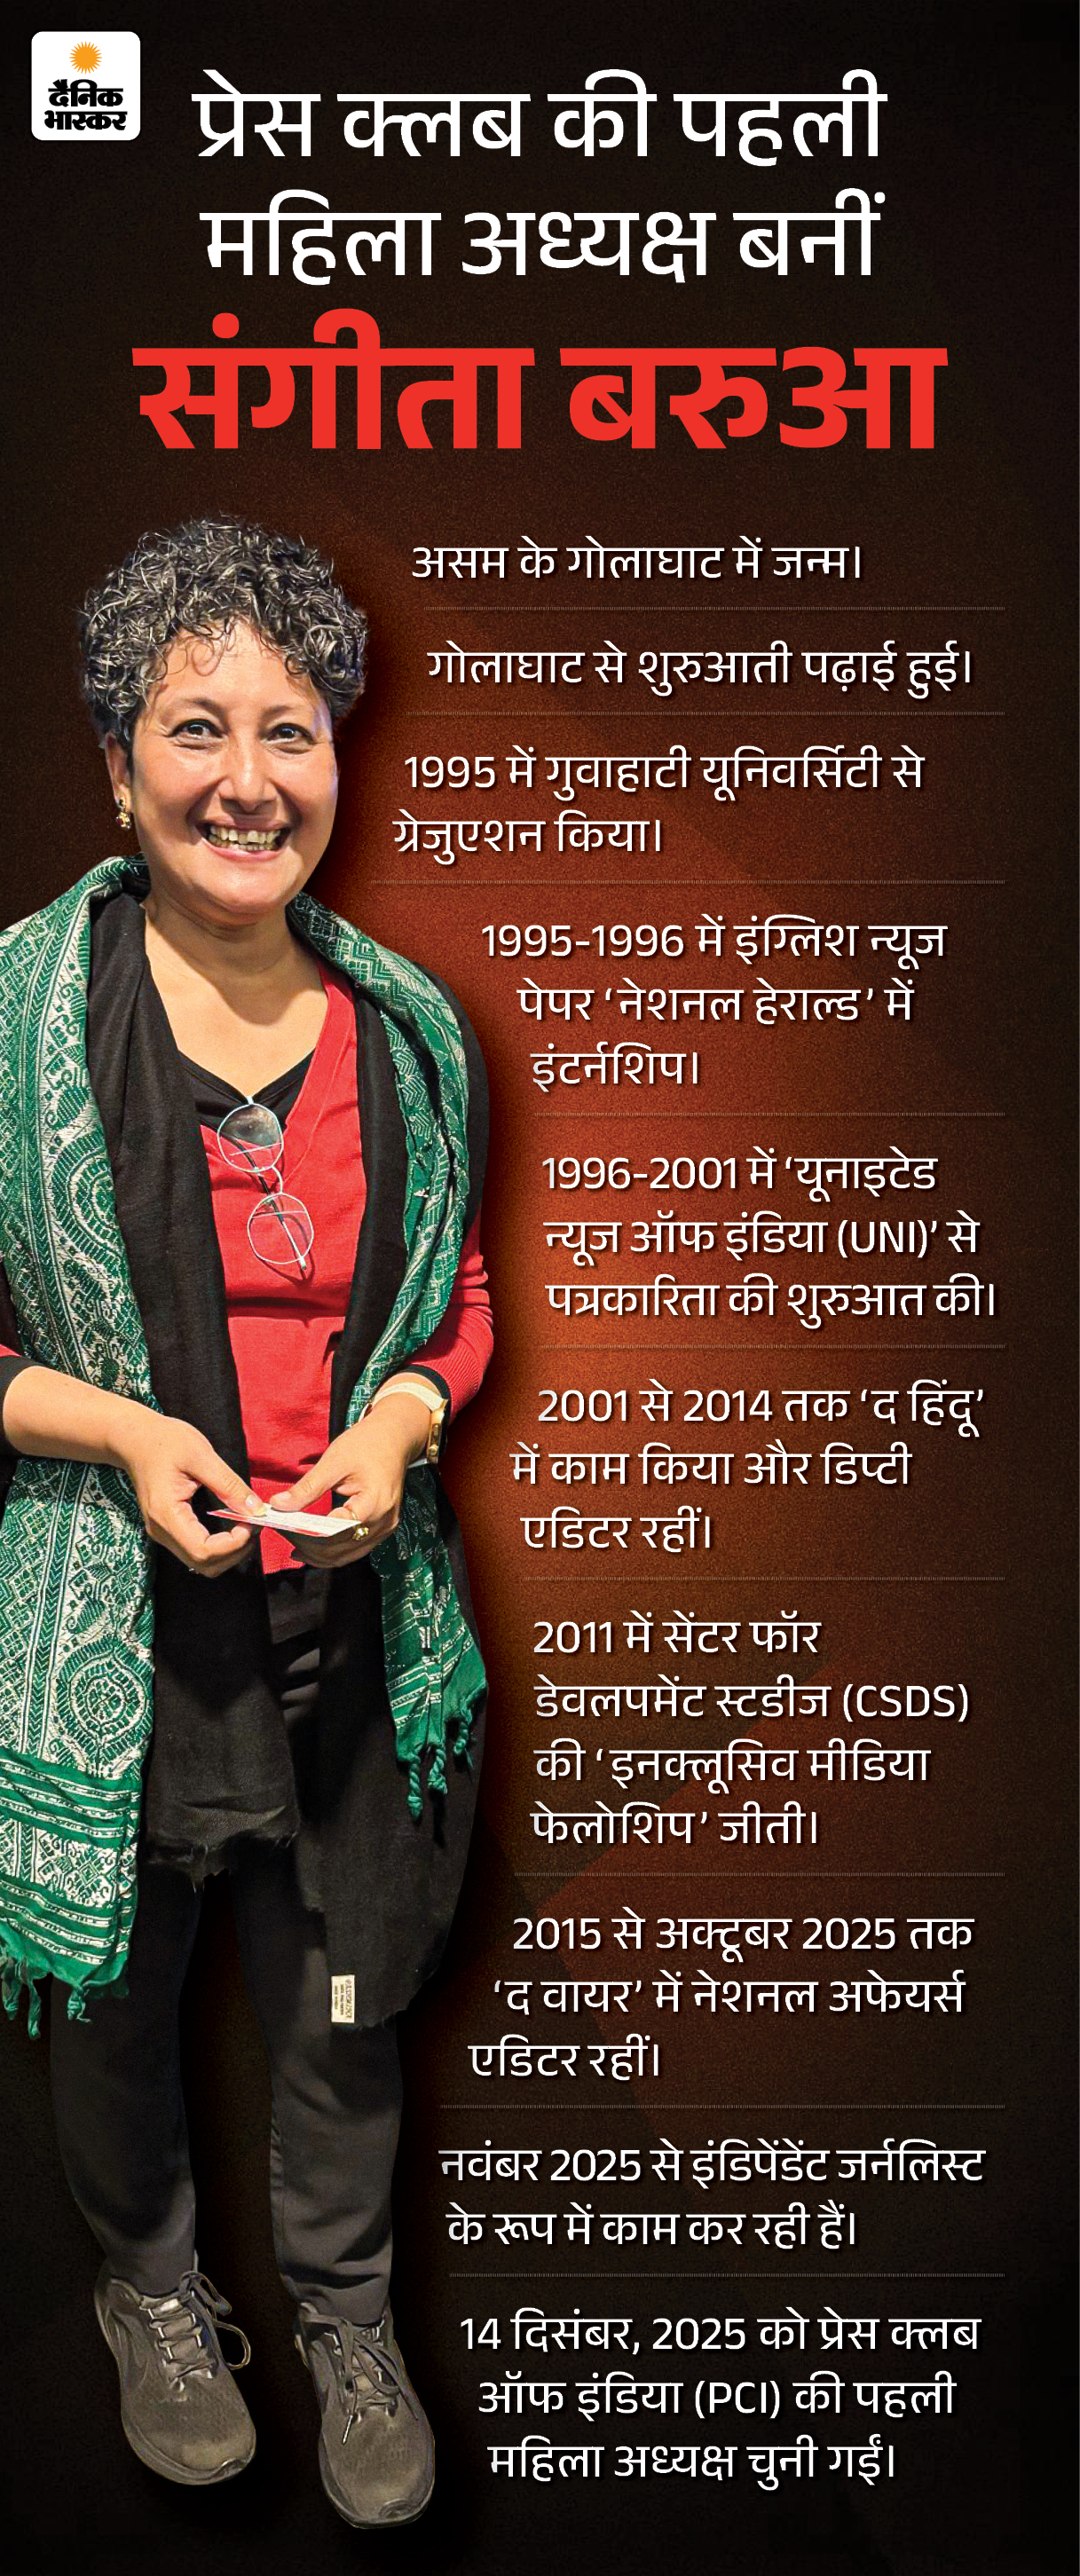 दैनिक
भास्कर
प्रेस क्लब की पहली
महिला अध्यक्ष बनीं
संगीता बरुआ
असम के गोलाघाट में जन्म।
गोलाघाट से शुरुआती पढ़ाई हुई।
1995 में गुवाहाटी यूनिवर्सिटी से
ग्रेजुएशन किया।
1995-1996 में इंग्लिश न्यूज
पेपर ‘नेशनल हेराल्ड’ में
इंटर्नशिप।
1996-2001 में ‘यूनाइटेड
न्यूज ऑफ इंडिया (UNI)’ से
पत्रकारिता की शुरुआत की।
2001 से 2014 तक ‘द हिंदू’
में काम किया और डिप्टी
एडिटर रहीं।
2011 में सेंटर फॉर
डेवलपमेंट स्टडीज (CSDS)
की ‘इनक्लूसिव मीडिया
फेलोशिप’ जीती।
2015 से अक्टूबर 2025 तक
‘द वायर’ में नेशनल अफेयर्स
एडिटर रहीं।
नवंबर 2025 से इंडिपेंडेंट जर्नलिस्ट
के रूप में काम कर रही हैं।
14 दिसंबर, 2025 को प्रेस क्लब
ऑफ इंडिया (PCI) की पहली
महिला अध्यक्ष चुनी गईं।